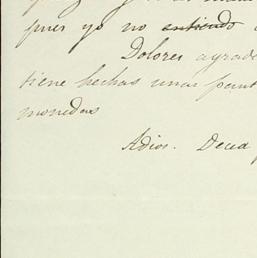 pues yo no entiendo
Dolores agrade
tiene hechas unas pant
monedas
Adios.